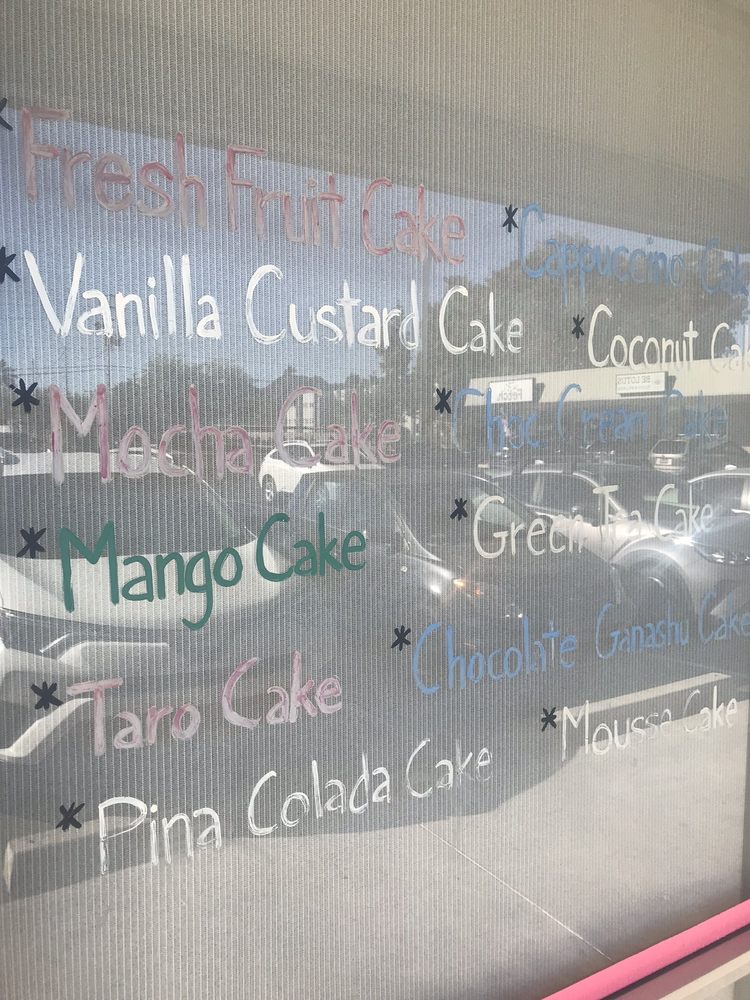 * Fresh Fruit Cake
* Vanilla Custard Cake
* Mocha Cake
* Mango Cake
* Taro Cake
* Pina Colada Cake
* Cappuccino Cake
* Coconut Cake
* Choc Cream Cake
* Green Tea Cake
* Chocolate Ganashu Cake
* Mousse Cake
Fetch
BE LOTUS